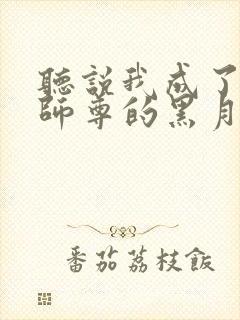 聽説我成了
師尊的黑月
番茄荔枝飯